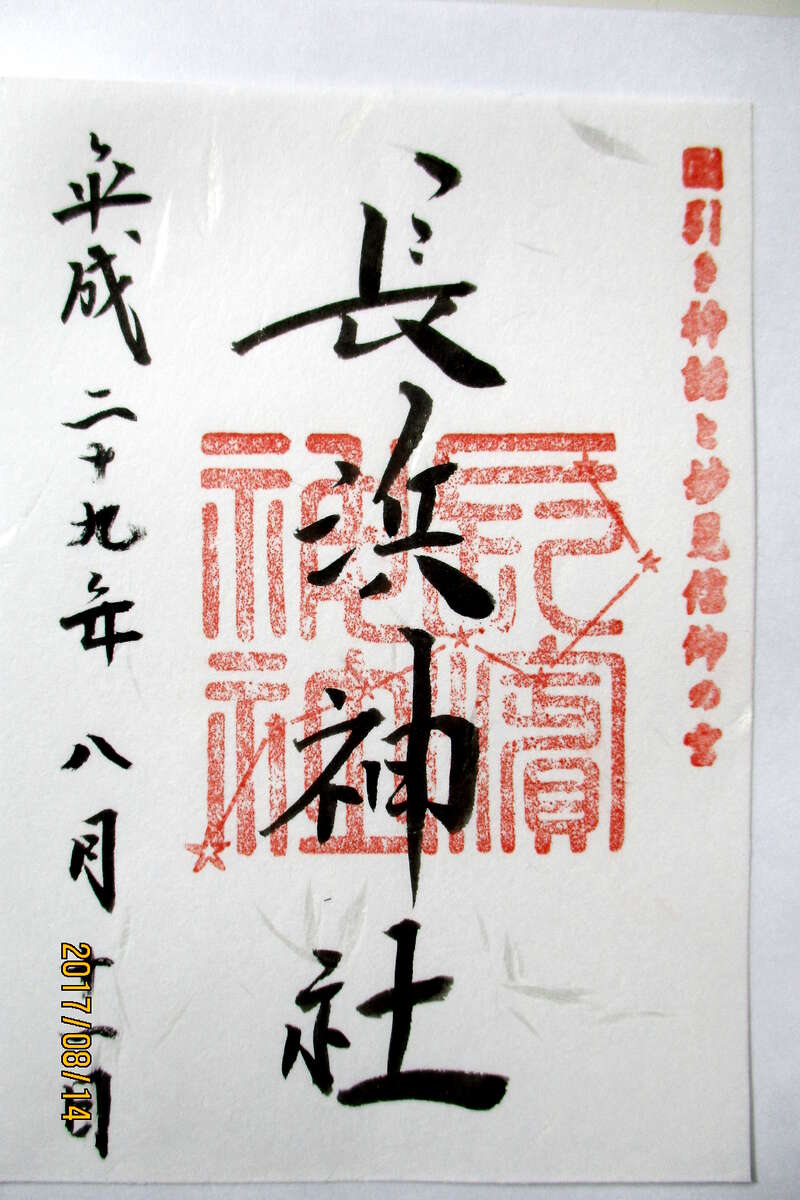 国引き神話と妙見信仰の宮
長浜神社
長濱神社
平成二十九年八月十一日
2017/08/14